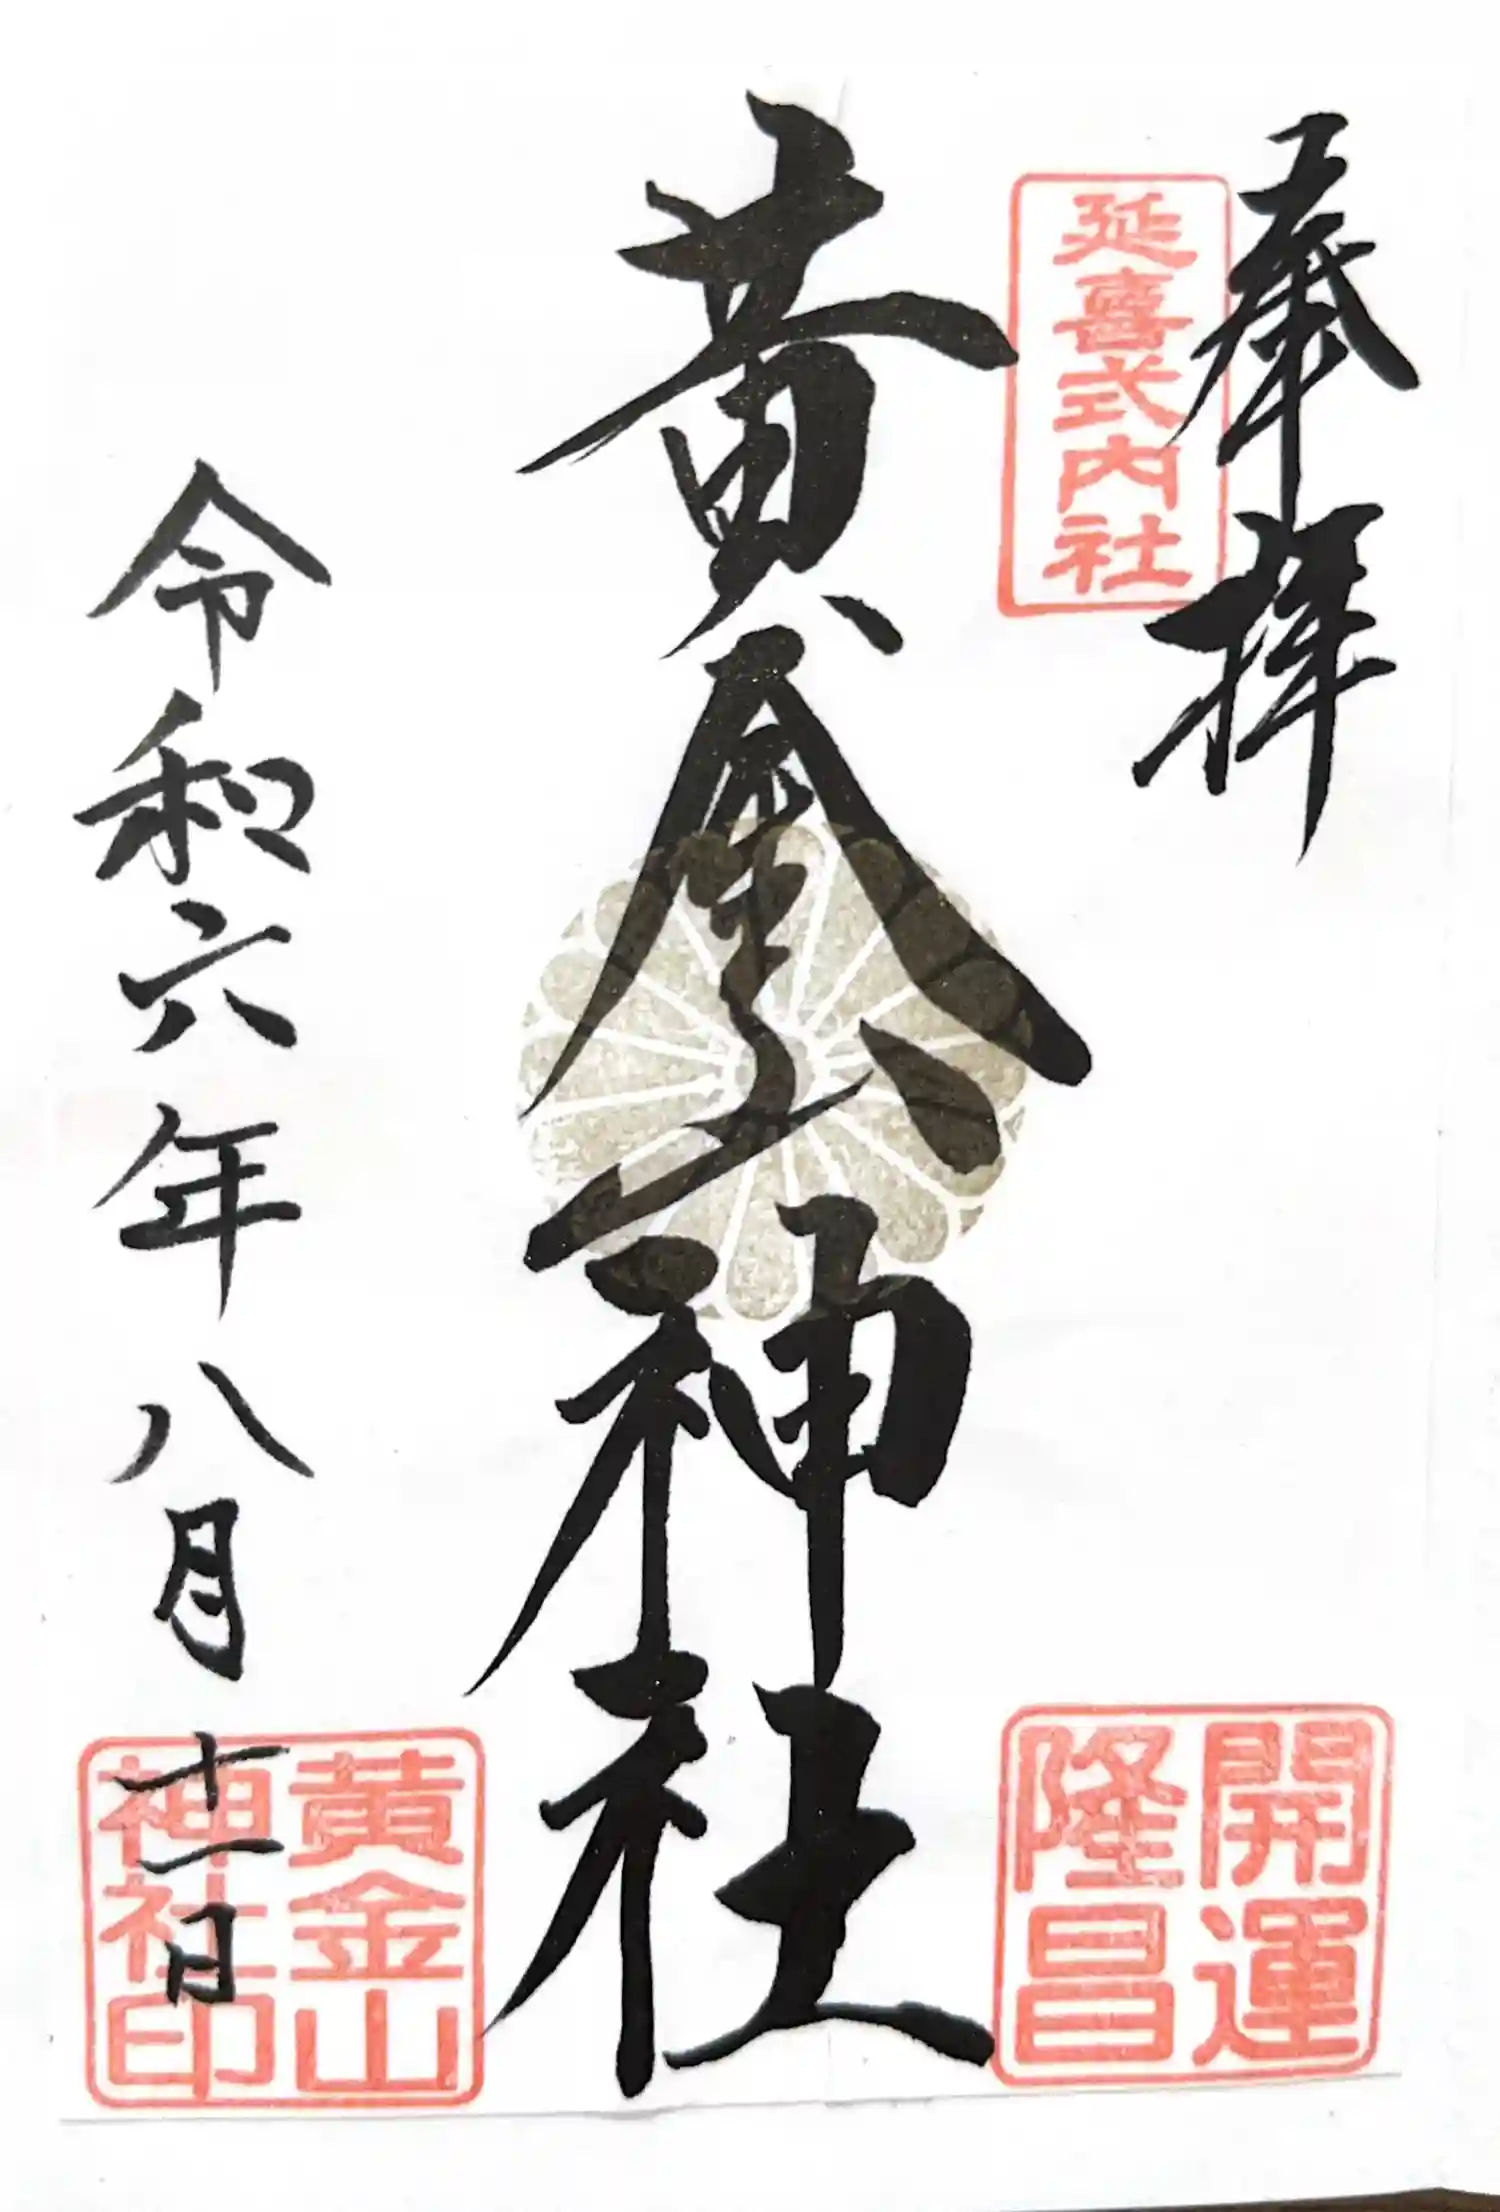 奉拝
延喜式内社
開運
隆昌
黄金神社
令和六年八月十一日
黄金山
神社印